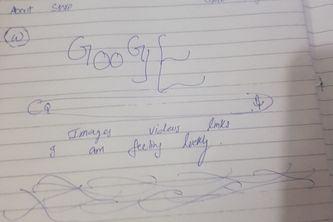 About Store
(W)
GooG
Images videos links
I am feeling lucky.